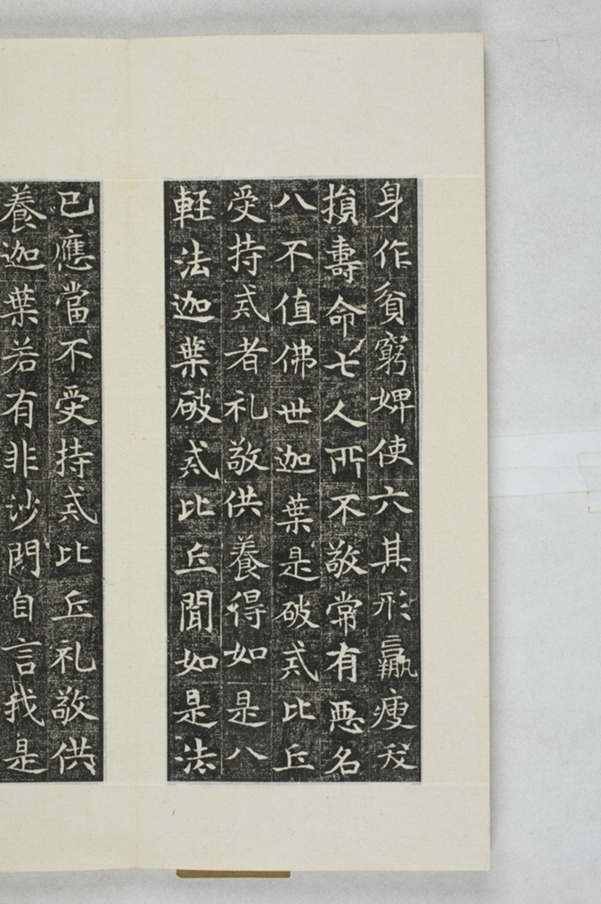 身作貧窮婢使六其形羸瘦殀
損壽命七人所不敬常有惡名
八不值佛世迦葉是破戒比丘
受持戒者礼敬供養得如是八
輕法迦葉破戒比丘聞如是法
已應當不受持戒比丘礼敬供
養迦葉若有非沙門自言我是